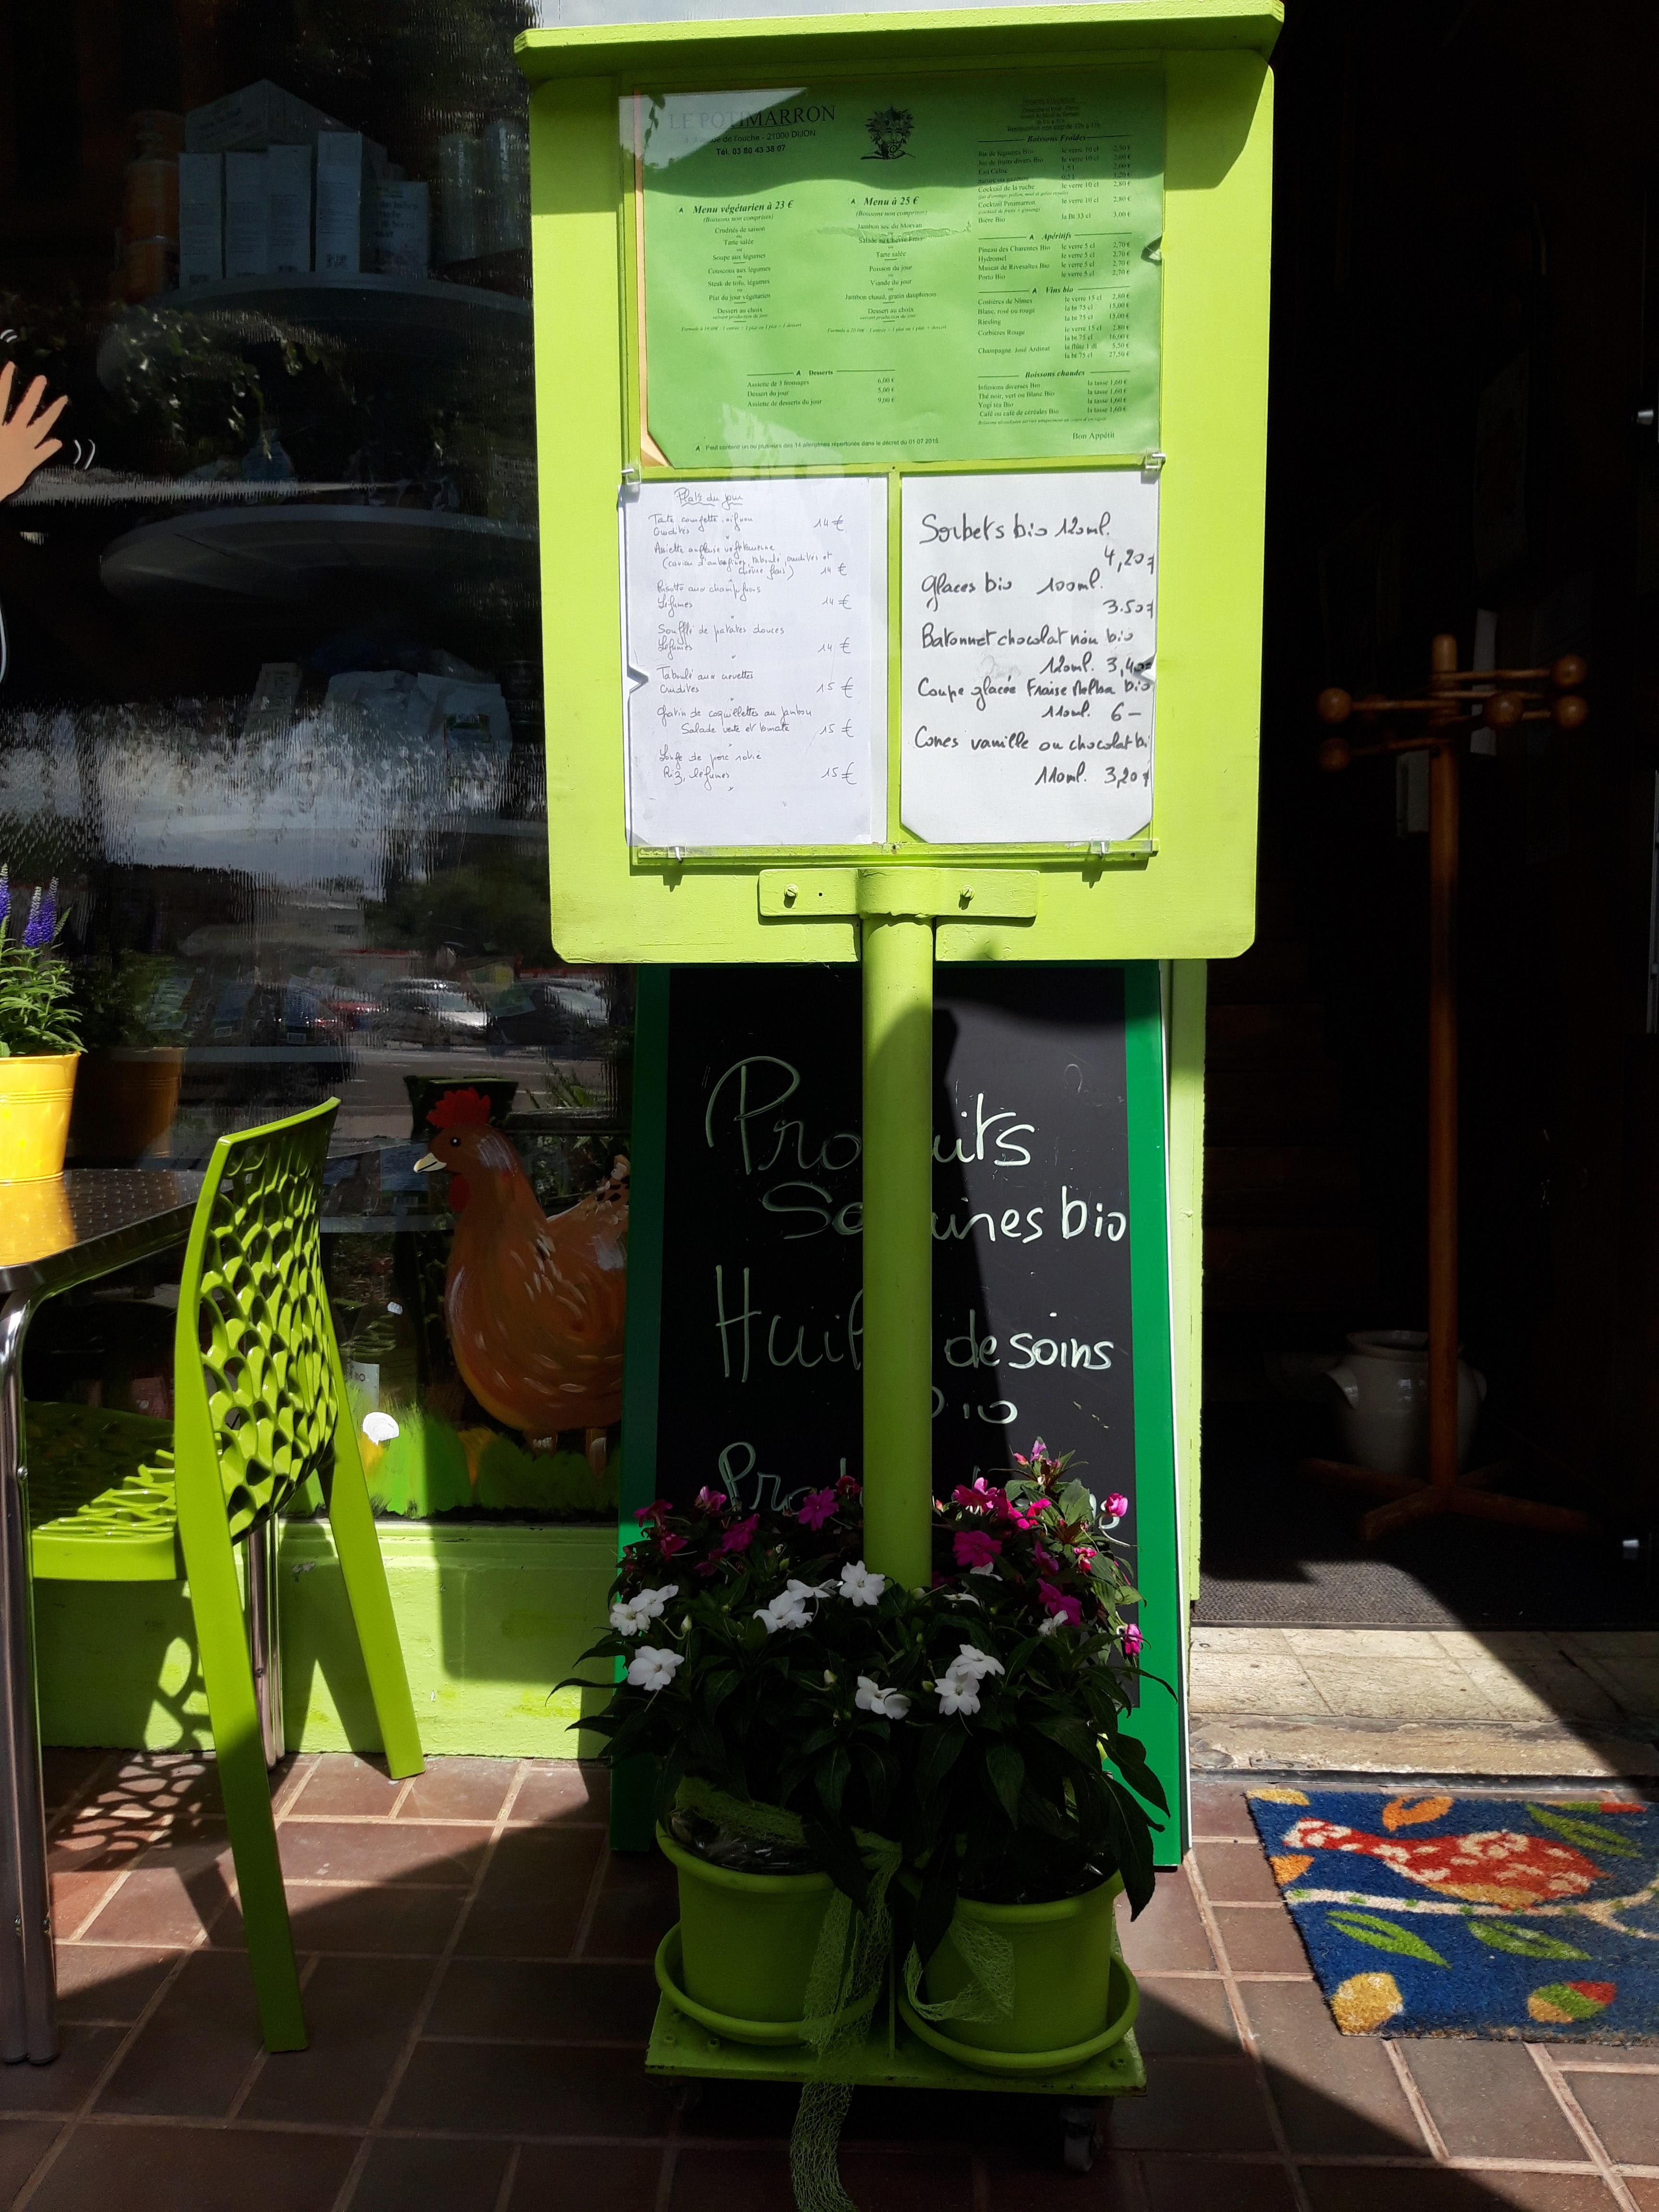 LE POTIMARRON
de l'ouche - 21000 DIJON
Tél. 03 80 43 38 07
A Menu végétarien à 23 €
(Boissons non comprises)
Crudités de saison
ou
Tarte salée
ou
Soupe aux légumes
Couscous aux légumes
ou
Steak de tofu, légumes
ou
Plat du jour végétarien
Dessert au choix
suivant production du jour
A Menu à 25 €
(Boissons non comprises)
Jambon sec du Morvan
ou
Salade au Chèvre
ou
Tarte salée
Poisson du jour
ou
Viande du jour
ou
Jambon chaud, gratin dauphinois
Dessert au choix
suivant production du jour
A Desserts
Assiette de 3 fromages 6,00 €
Dessert du jour 5,00 €
Assiette de desserts du jour 9,00 €
Boissons Froides
Jus de légumes Bio le verre 10 cl 2,50 €
Jus de fruits divers Bio le verre 10 cl
Cocktail de la ruche le verre 10 cl 2,80 €
Cocktail Potimarron le verre 10 cl 2,80 €
Bière Bio la Bt 33 cl 3,00 €
A Apéritifs
Pineau des Charentes Bio le verre 5 cl 2,70 €
Hydromel le verre 5 cl 2,70 €
Muscat de Rivesaltes Bio le verre 5 cl 2,70 €
Porto Bio le verre 5 cl 2,70 €
A Vins bio
Costières de Nîmes le verre 15 cl 2,80 €
Blanc, rosé ou rouge la bt 75 cl 15,00 €
Riesling la bt 75 cl
Corbières Rouge le verre 15 cl 2.80 €
la bt 75 cl 16,00 €
Champagne José Ardinat la flûte 1 dl 5,50 €
la bt 75 cl 27,50 €
Boissons chaudes
Infusions diverses Bio la tasse 1,60 €
Thé noir, vert ou Blanc Bio la tasse 1,60 €
Yogi tea Bio la tasse 1,60 €
Café ou café de céréales Bio la tasse 1,60 €
Bon Appétit
A Peut contenir un ou plusieurs des 14 allergènes répertoriés dans le décret du 01 07 2015
Plats du jour
Tarte courgette oignon
Crudités 14 €
Assiette végétarienne
(caviar d'aubergines, taboulé, crudités et
chèvre frais) 14 €
Risotto aux champignons
Légumes 14 €
Soufflé de patates douces
Légumes 14 €
Taboulé aux crevettes
Crudités 15 €
Gratin de coquillettes au jambon
Salade verte et tomate 15 €
Longe de porc
Riz, légumes 15 €
Sorbets bio 120ml.
4,20€
Glaces bio 100ml.
3.50€
Batonnet chocolat noir bio
120ml. 3,40€
Coupe glacée Fraise Melba bio
110ml. 6-
Cones vanille ou chocolat bi
110ml. 3,20€
Pro uits
bio
Huil de soins
bio